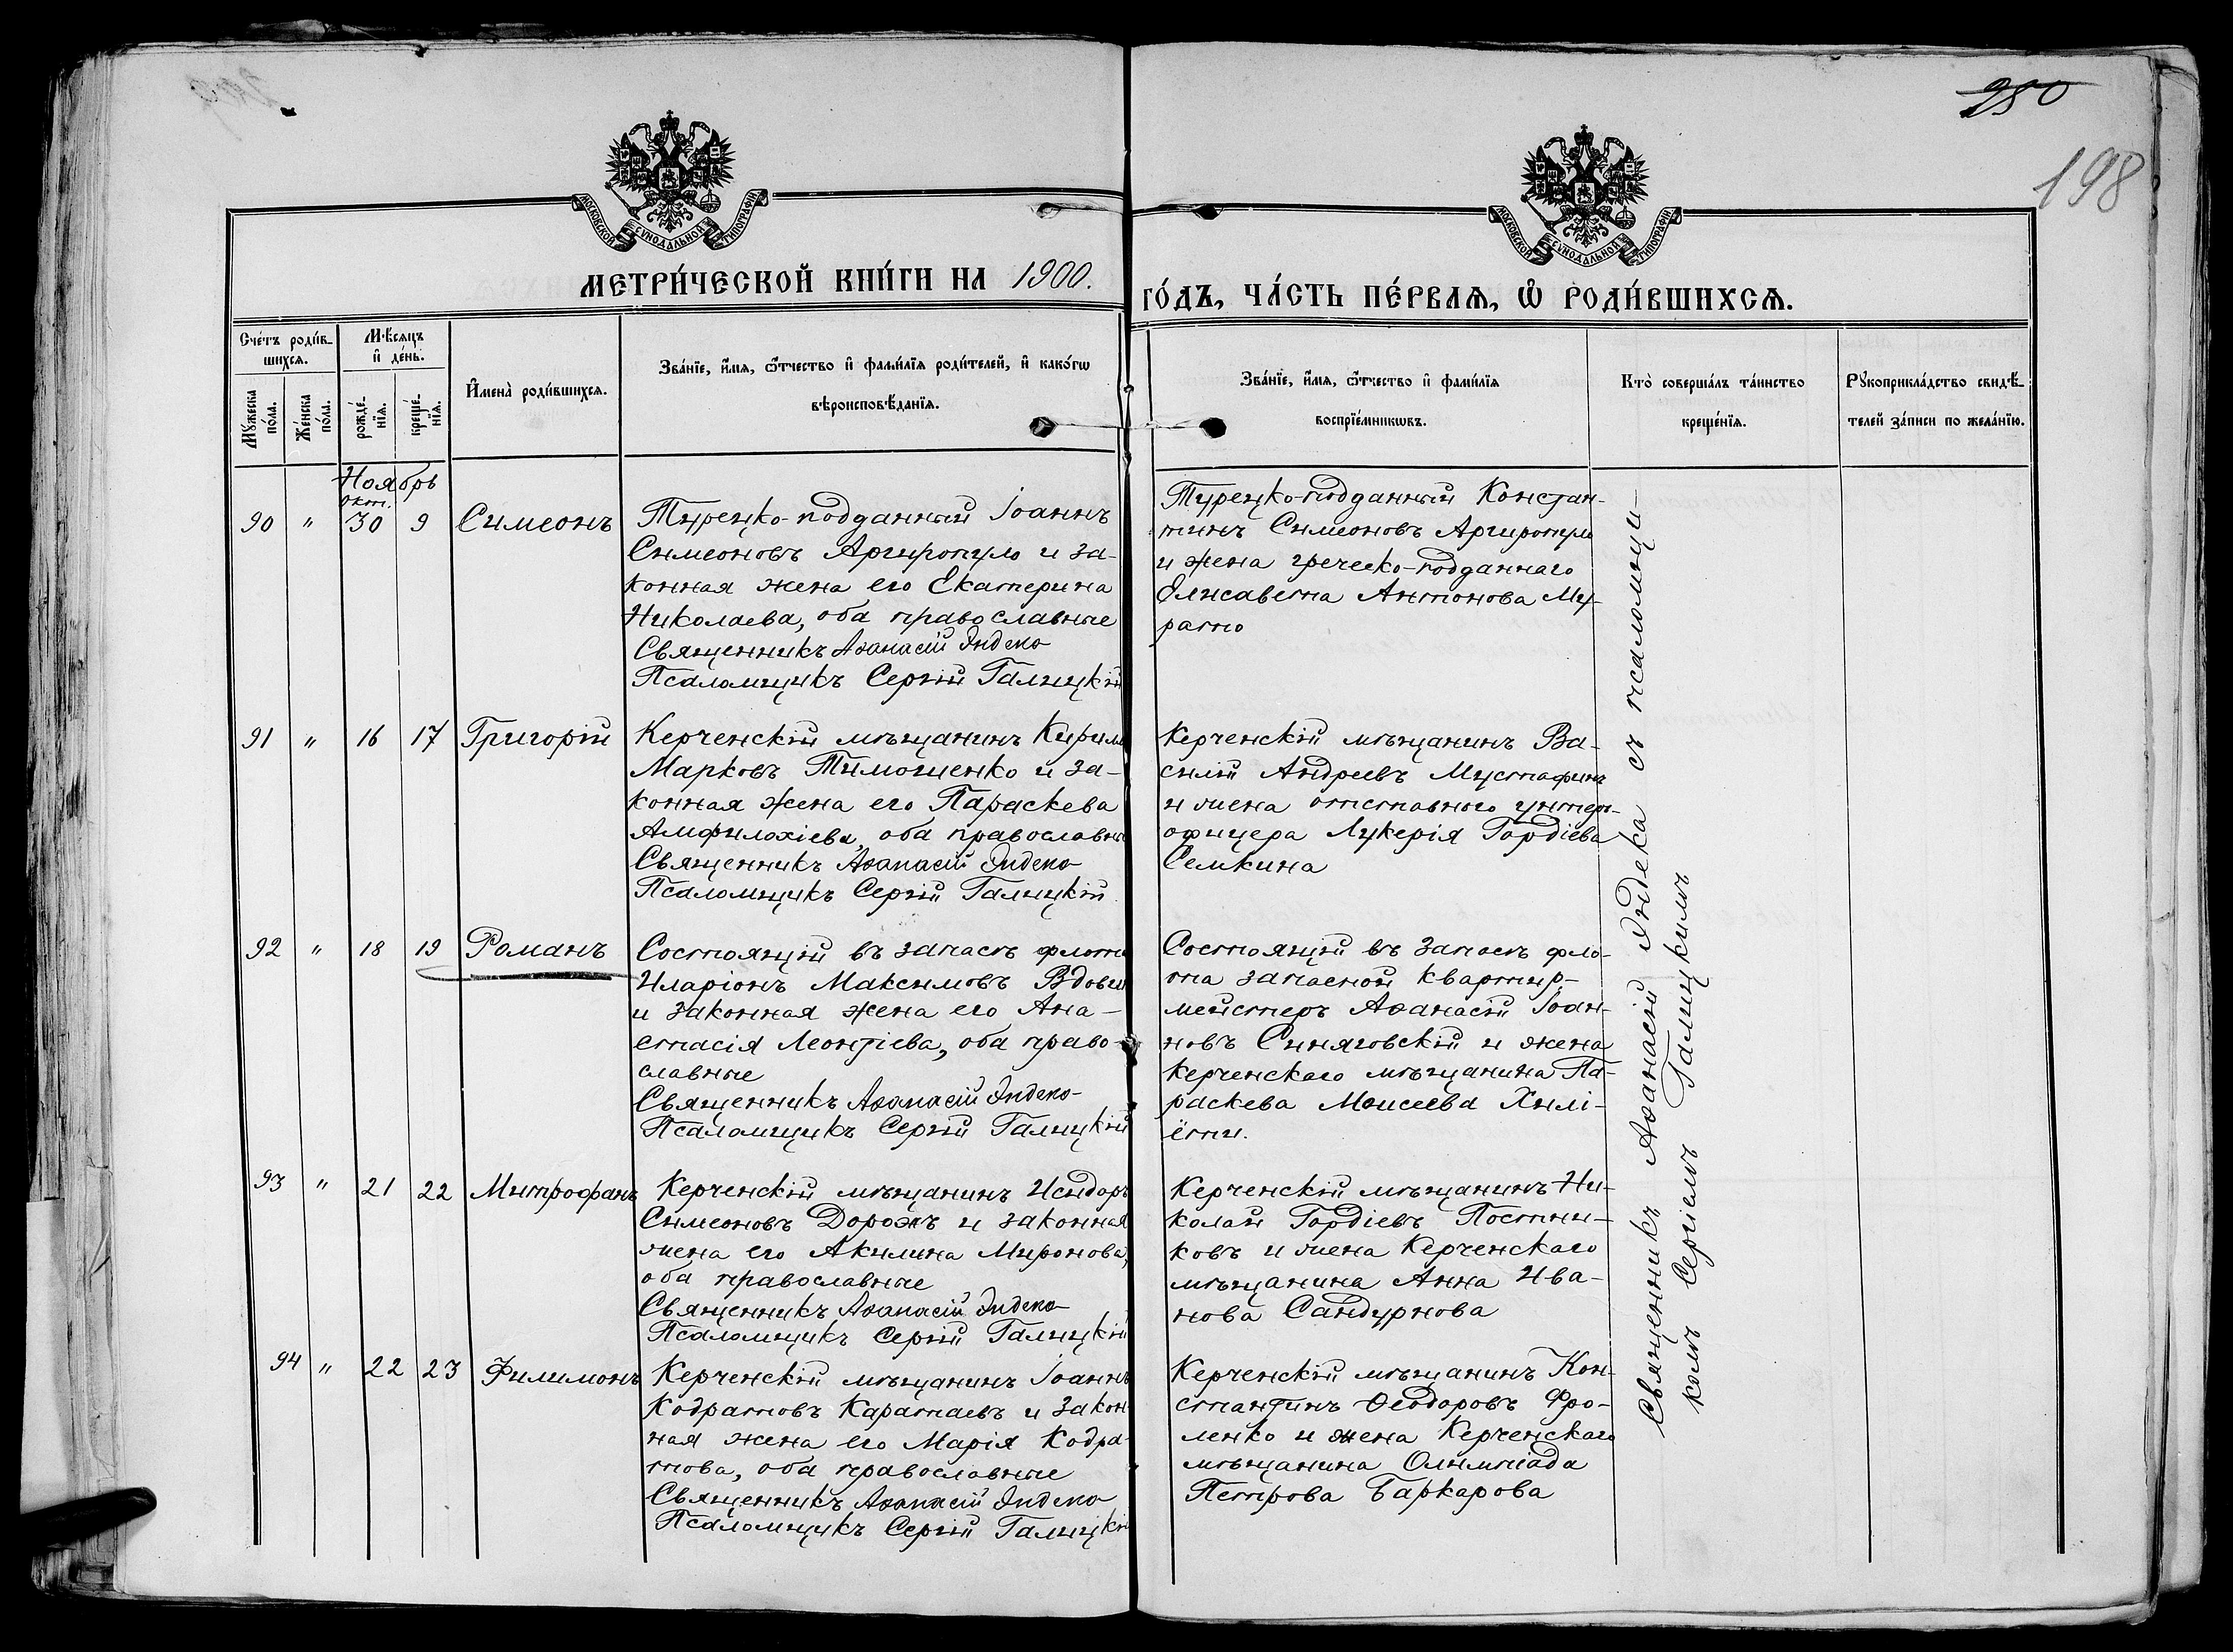 250
198
МОСКОВСКОЙ СУНОДАЛЬНОЙ ТИПОГРАФІИ
МОСКОВСКОЙ СУНОДАЛЬНОЙ ТИПОГРАФІИ
МЕТРИ́ЧЕСКОЙ КНИ́ГИ НА 1900.
ГО́ДЪ, ЧА́СТЬ ПЕ́РВАѦ, Ѽ РОДИ́ВШИХСѦ.
Сче́тъ роди́в-
шихсѧ.
Мѣ́сѧцъ
и҆ де́нь.
Мꙋ́жеска
по́ла.
Же́нска
по́ла.
рожде́-
нїѧ.
креще́-
нїѧ.
И҆мена̀ роди́вшихсѧ.
Зва́нїе, и҆́мѧ, ѻ҆́тчество и҆ фами́лїѧ роди́телей, и҆ како́гѡ
вѣроисповѣ́данїѧ.
Зва́нїе, и҆́мѧ, ѻ҆́тчество и҆ фами́лїѧ
воспрїе́мникѡвъ.
Кто̀ соверша́лъ та́инство
креще́нїѧ.
Рꙋкоприкла́дство свидѣ́-
телей за́писи по жела́нїю.
Ноябрь
окт.
90 " 30 9 Симеонъ
Турецко-подданный Іоаннъ
Симеоновъ Аргиропуло и за-
конная жена его Екатерина
Николаева, оба православные
Священникъ Аѳанасій Индеко
Псаломщикъ Сергій Галицкій
Турецко-подданный Констан-
тинъ Симеоновъ Аргиропуло
и жена греческо-подданнаго
Елисавета Антонова Му-
рато
91 " 16 17 Григорій
Керченскій мѣщанинъ Кирилъ
Марковъ Тимошенко и за-
конная жена его Параскева
Амфилохіева, оба православные
Священникъ Аѳанасій Индеко
Псаломщикъ Сергій Галицкій
Керченскій мѣщанинъ Ва-
силій Андреевъ Мустафинъ
и жена отставного унтеръ-
офицера Лукерія Гордіева
Семкина
92 " 18 19 Романъ
Состоящій въ запасѣ флота
Иларіонъ Максимовъ
и законная жена его Ана-
стасія Леонтіева, оба право-
славные
Священникъ Аѳанасій Индеко
Псаломщикъ Сергій Галицкій
Состоящій въ запасѣ фло-
та запасной квартир-
мейстеръ Аѳанасій Іоан-
новъ Синяговскій и жена
Керченскаго мѣщанина Па-
раскева Моисеева Хилі-
ёти.
93 " 21 22 Митрофанъ
Керченскій мѣщанинъ Исидоръ
Симеоновъ Дорожъ и законная
жена его Акилина Миронова,
оба православные
Священникъ Аѳанасій Индеко
Псаломщикъ Сергій Галицкій
Керченскій мѣщанинъ Ни-
колай Гордіевъ Постни-
ковъ и жена Керченскаго
мѣщанина Анна Ива-
нова Сандурнова
94 " 22 23 Филимонъ
Керченскій мѣщанинъ Іоаннъ
Кодратовъ Каратаевъ и закон-
ная жена его Марія Кодра-
това, оба православные
Священникъ Аѳанасій Индеко
Псаломщикъ Сергій Галицкій
Керченскій мѣщанинъ Кон-
стантинъ Ѳеодоровъ Фро-
ленко и жена Керченскаго
мѣщанина Олимпіада
Петрова Баркарова
Священникъ Аѳанасій Индека съ псаломщи-
комъ Сергіемъ Галицкимъ